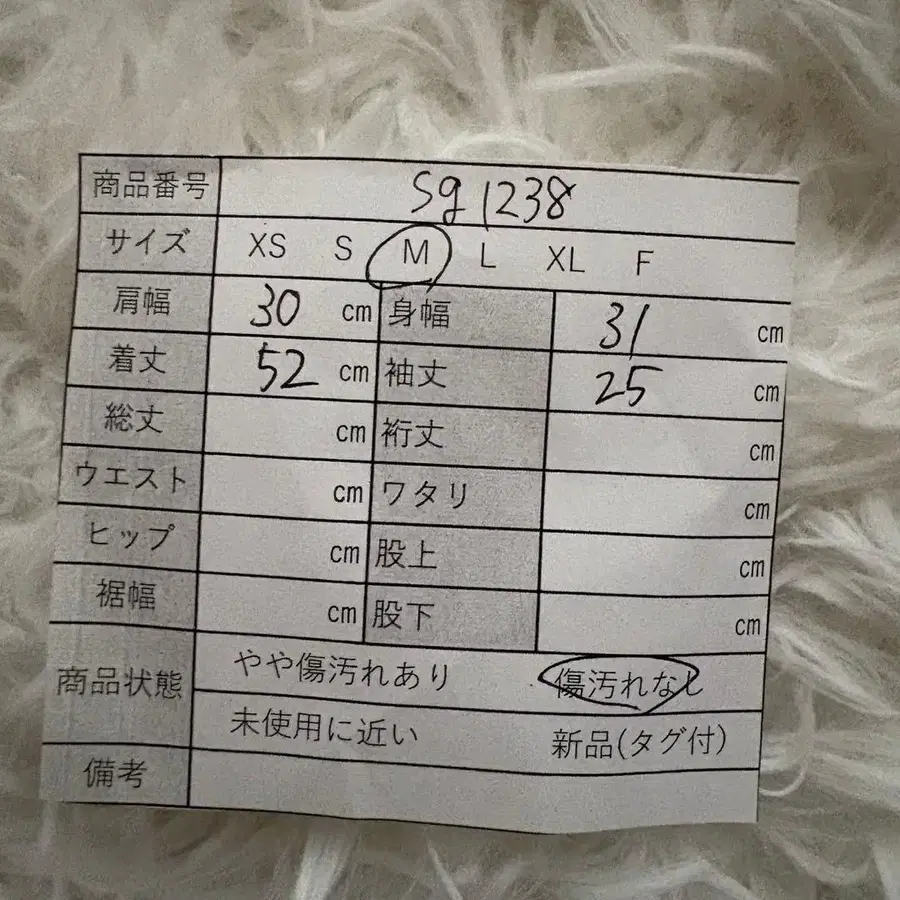 商品番号 sg1238
サイズ XS S M L XL F
肩幅 30 cm 身幅 31 cm
着丈 52 cm 袖丈 25 cm
総丈 cm 裄丈 cm
ウエスト cm ワタリ cm
ヒップ cm 股上 cm
裾幅 cm 股下 cm
商品状態 やや傷汚れあり 傷汚れなし
未使用に近い 新品(タグ付)
備考